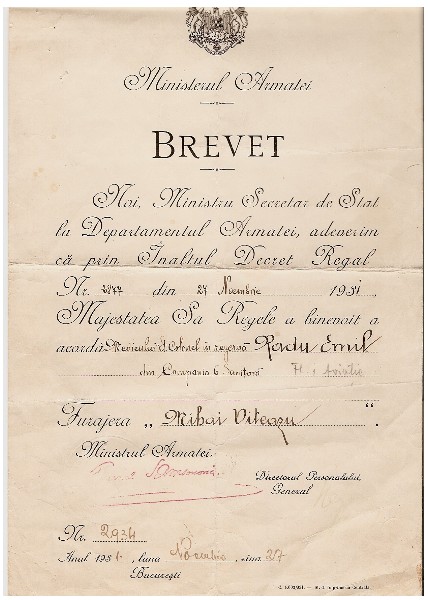 Ministerul Armatei
BREVET
Noi, Ministru Secretar de Stat
la Departamentul Armatei, adeverim
că prin Înaltul Decret Regal
Nr. 2877 din 27 Noembrie 1931,
Majestatea Sa Regele a binevoit a
acorda Medicului Lt. Colonel în rezervă Radu Emil
din Compania 6 Sanitară
Furajera „ Mihai Viteazu “.
Ministrul Armatei,
Directorul Personalului,
General
Nr. 2934
Anul 1931, luna Noembrie, ziua 27
București